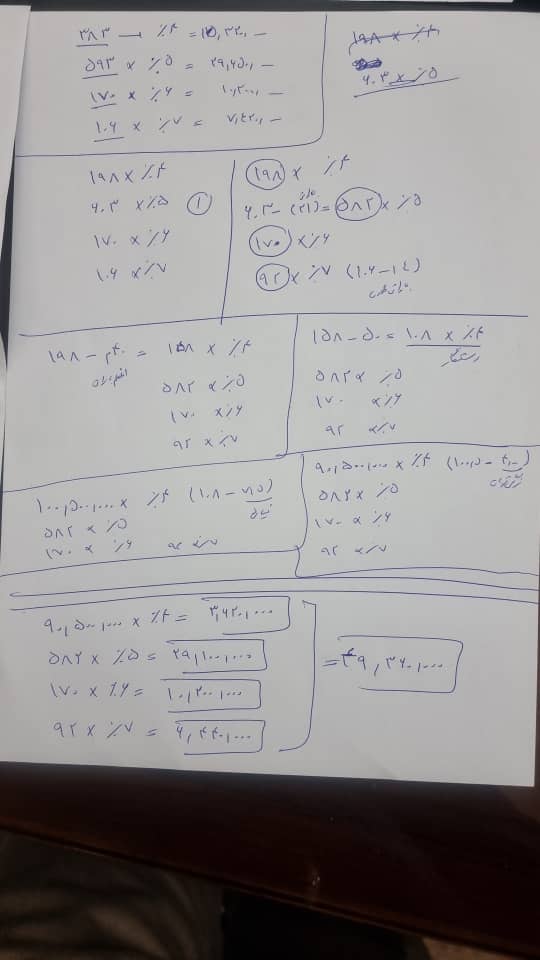 ۳۸۳ → ٪۴ = ۱۵,۳۲۰,-
۵۹۳ × ٪۵ = ۲۹,۶۵۰,-
۱۷۰ × ٪۶ = ۱۰,۲۰۰,-
۱۰۶ × ٪۷ = ۷,۴۲۰,-
۱۹۸ × ٪۴
۶۰۳ × ٪۵
۱۹۸ × ٪۴
۶۰۳ × ٪۵ ①
۱۷۰ × ٪۶
۱۰۶ × ٪۷
۱۹۸ × ٪۴
۶۰۳ - (۲۱) = ۵۸۲ × ٪۵
۱۷۰ × ٪۶
۹۲ × ٪۷ (۱۰۶-۱۴)
۱۹۸ - ۴۰ = ۱۵۸ × ٪۴
۵۸۲ × ٪۵
۱۷۰ × ٪۶
۹۲ × ٪۷
۱۵۸ - ۵۰ = ۱۰۸ × ٪۴
۵۸۲ × ٪۵
۱۷۰ × ٪۶
۹۲ × ٪۷
۱۰۰,۵۰۰,۰۰۰ × ٪۴ (۱۰۸ - ۷,۵)
۵۸۲ × ٪۵
۱۷۰ × ٪۶ ۹۲ × ٪۷
۹۰,۵۰۰,۰۰۰ × ٪۴
۵۸۲ × ٪۵
۱۷۰ × ٪۶
۹۲ × ٪۷
۹۰,۵۰۰,۰۰۰ × ٪۴ = ۳,۶۲۰,۰۰۰
۵۸۲ × ٪۵ = ۲۹,۱۰۰,۰۰۰
۱۷۰ × ٪۶ = ۱۰,۲۰۰,۰۰۰
۹۲ × ٪۷ = ۶,۴۴۰,۰۰۰
= ۴۹,۳۶۰,۰۰۰